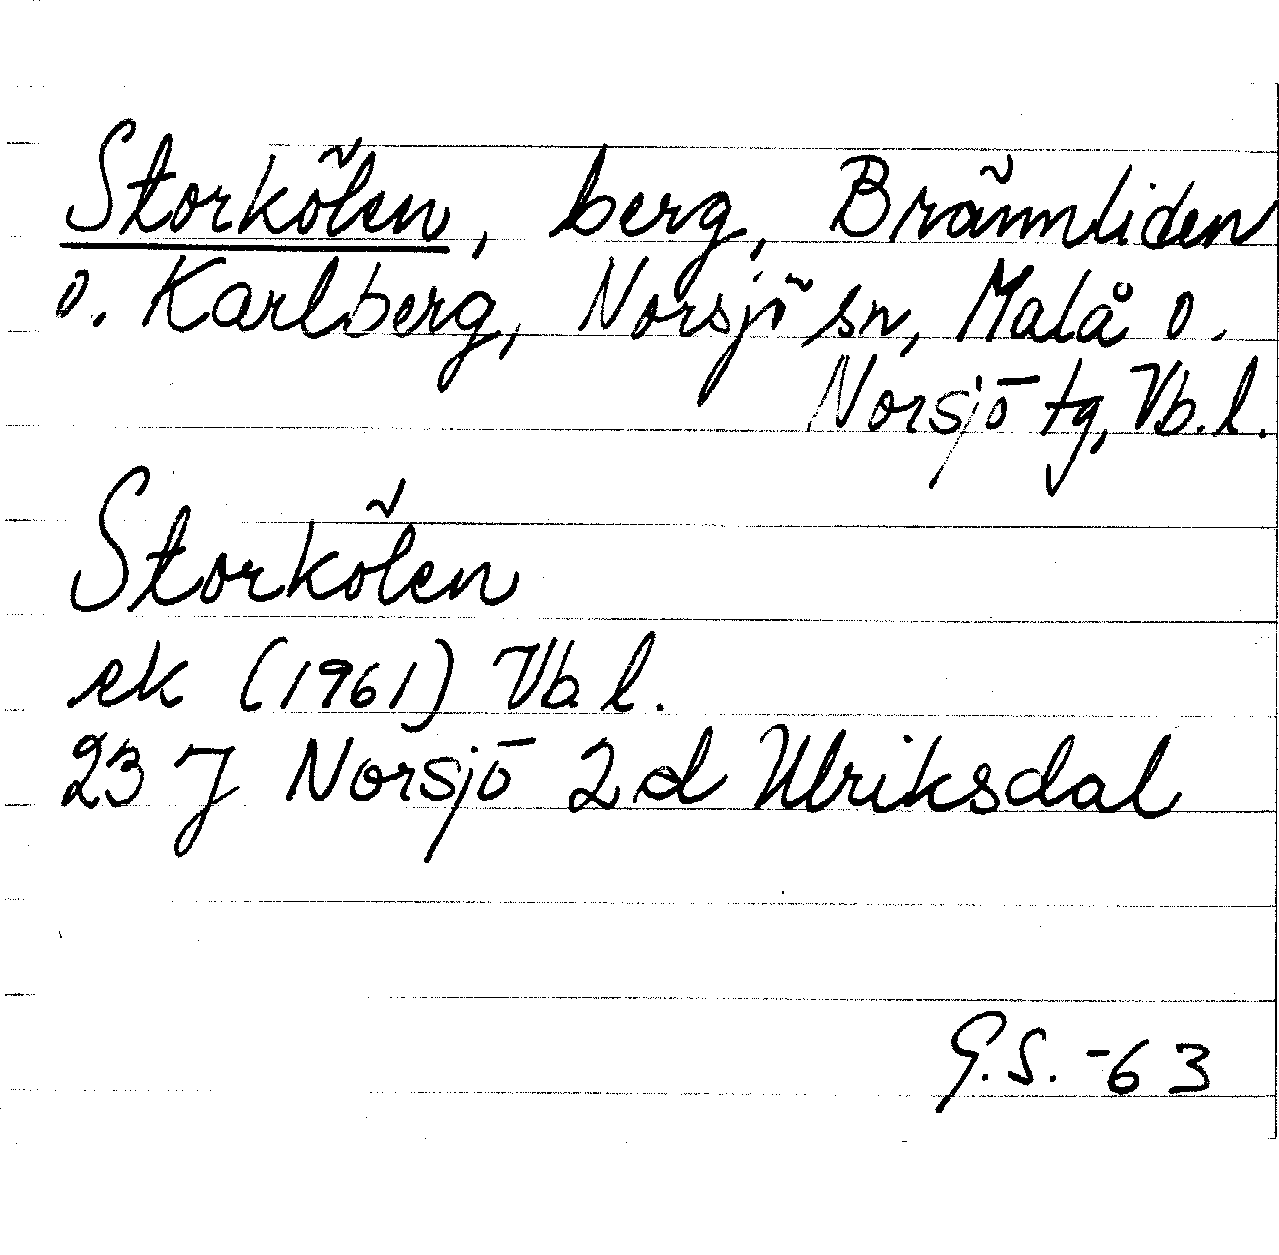 Storkölen, berg, Brännliden
o. Karlberg, Norsjö sn, Malå o.
Norsjö tg, Vb. l.
Storkölen
ek (1961) Vb. l.
23 J Norsjö 2 d Ulriksdal
G.S. -63